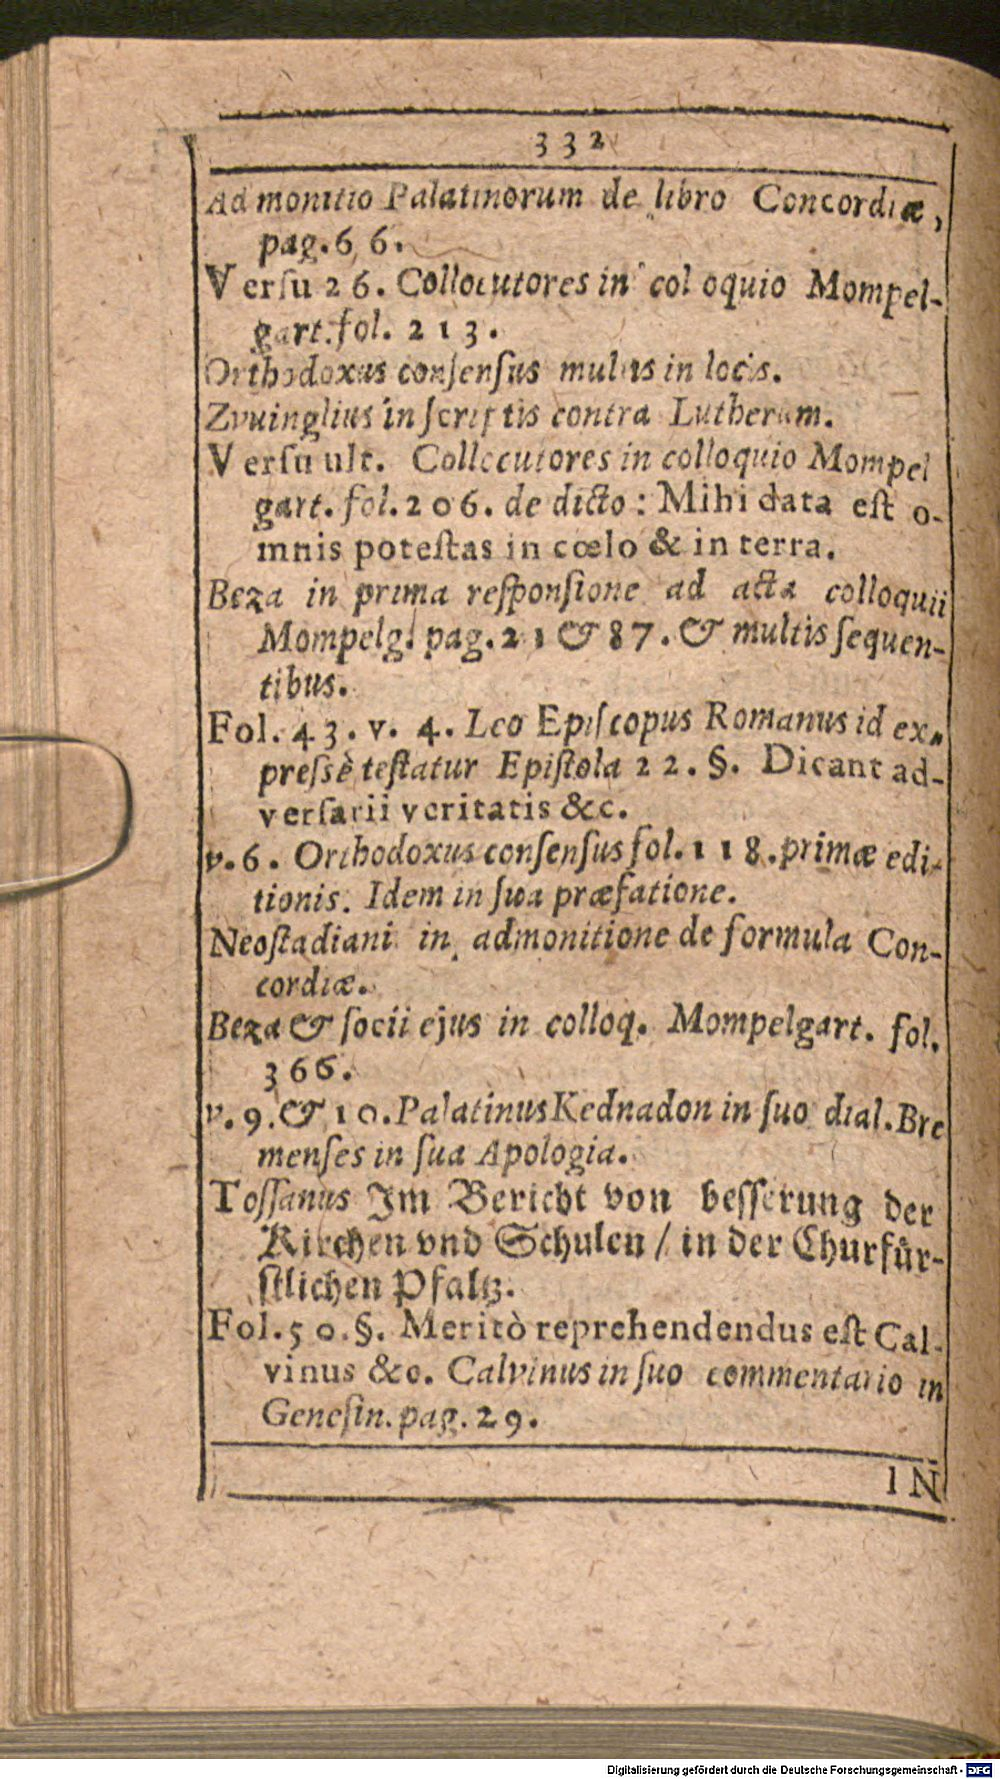 332
Admonitio Palatinorum de libro Concordiæ,
pag. 66.
Versu 26. Collocutores in colloquio Mompel-
gart. fol. 213.
Orthodoxus consenſus multis in locis.
Zvuinglius in ſcriptis contra Lutherum.
Verſu ult. Collocutores in colloquio Mompel
gart. fol. 206. de dicto: Mihi data eſt o-
mnis poteſtas in cœlo & in terra.
Beza in prima reſponſione ad acta colloquii
Mompelg. pag. 21 & 87. & multis ſequen-
tibus.
Fol. 43. v. 4. Leo Epiſcopus Romanus id ex-
preſsè teſtatur Epiſtola 22. §. Dicant ad-
verſarii veritatis &c.
v. 6. Orthodoxus conſenſus fol. 118. primæ edi-
tionis. Idem in ſua præfatione.
Neoſtadiani in admonitione de formula Con-
cordiæ.
Beza & ſocii ejus in colloq. Mompelgart. fol.
366.
v. 9. & 10. Palatinus Kednadon in ſuo dial. Bre
menſes in ſua Apologia.
Toſſanus Im Bericht von beſſerung der
Kirchen vnd Schulen / in der Churfür-
ſtlichen Pfaltz.
Fol. 50. §. Meritò reprehendendus eſt Cal-
vinus &c. Calvinus in ſuo commentario in
Geneſin. pag. 29.
IN
Digitalisierung gefördert durch die Deutsche Forschungsgemeinschaft - DFG